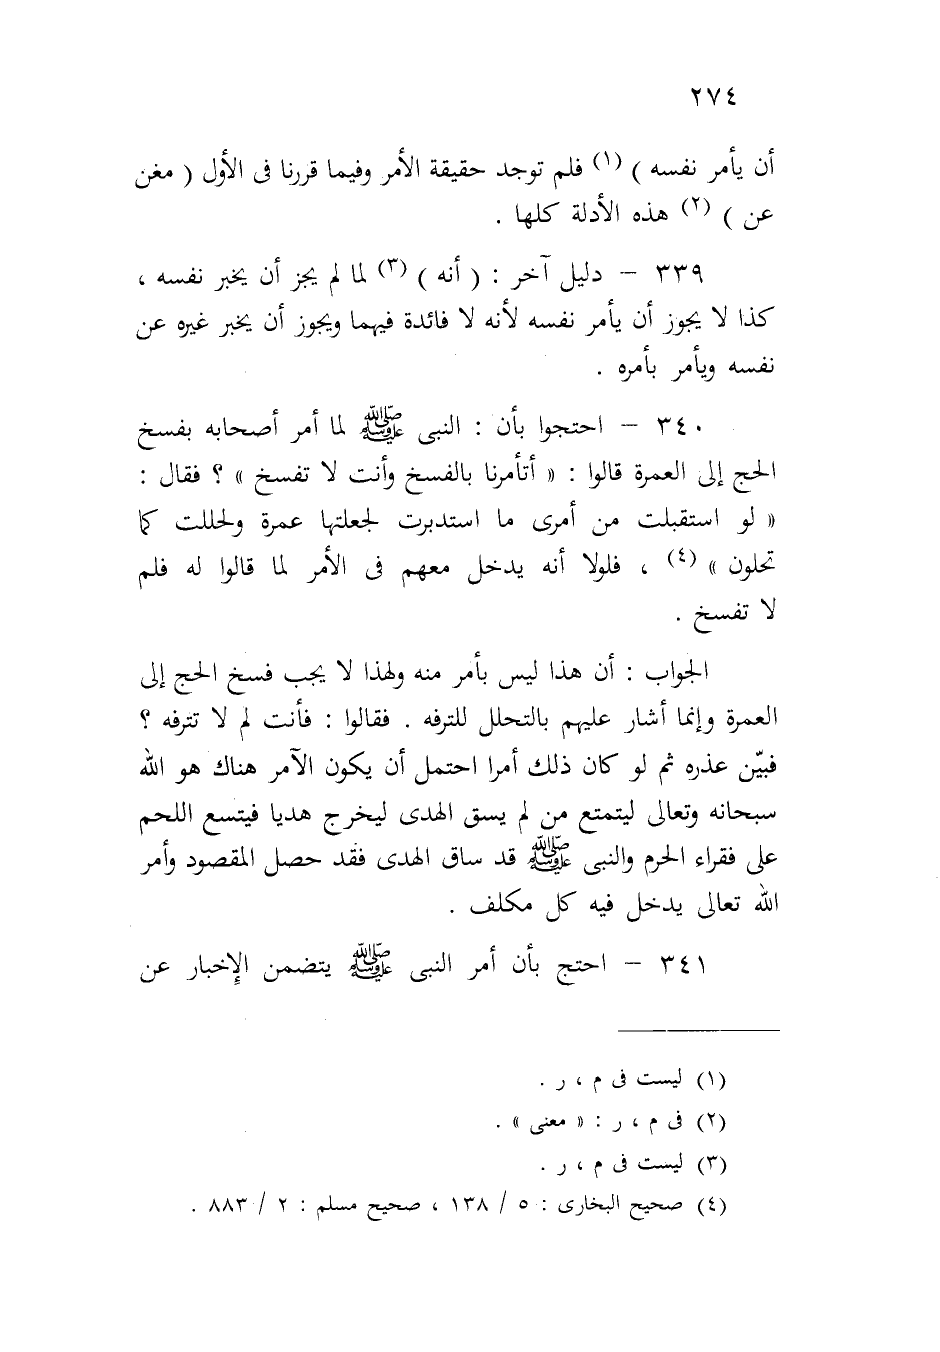 ٢٧٤
أن يأمر نفسه ) (١) فلم توجد حقيقة الأمر وفيما قررنا فى الأول ( مغن
عن ) (٢) هذه الأدلة كلها .
٣٣٩ – دليل آخر : ( أنه ) (٣) لما لم يجز أن يخبر نفسه ،
كذا لا يجوز أن يأمر نفسه لأنه لا فائدة فيهما ويجوز أن يخبر غيره عن
نفسه ويأمر بأمره .
٣٤٠ – احتجوا بأن : النبى ﷺ لما أمر أصحابه بفسخ
الحج إلى العمرة قالوا : « أتأمرنا بالفسخ وأنت لا تفسخ » ؟ فقال :
« لو استقبلت من أمرى ما استدبرت لجعلتها عمرة ولحللت كما
تحلون » (٤) ، فلولا أنه يدخل معهم فى الأمر لما قالوا له فلم
لا تفسخ .
الجواب : أن هذا ليس بأمر منه ولهذا لا يجب فسخ الحج إلى
العمرة وإنما أشار عليهم بالتحلل للترفه . فقالوا : فأنت لم لا تترفه ؟
فبيّن عذره ثم لو كان ذلك أمرا احتمل أن يكون الآمر هناك هو الله
سبحانه وتعالى ليتمتع من لم يسق الهدى ليخرج هديا فيتسع اللحم
على فقراء الحرم والنبى ﷺ قد ساق الهدى فقد حصل المقصود وأمر
الله تعالى يدخل فيه كل مكلف .
٣٤١ – احتج بأن أمر النبى ﷺ يتضمن الإخبار عن
(١) ليست فى م ، ر .
(٢) فى م ، ر : « معنى » .
(٣) ليست فى م ، ر .
(٤) صحيح البخارى : ٥ / ١٣٨ ، صحيح مسلم : ٢ / ٨٨٣ .